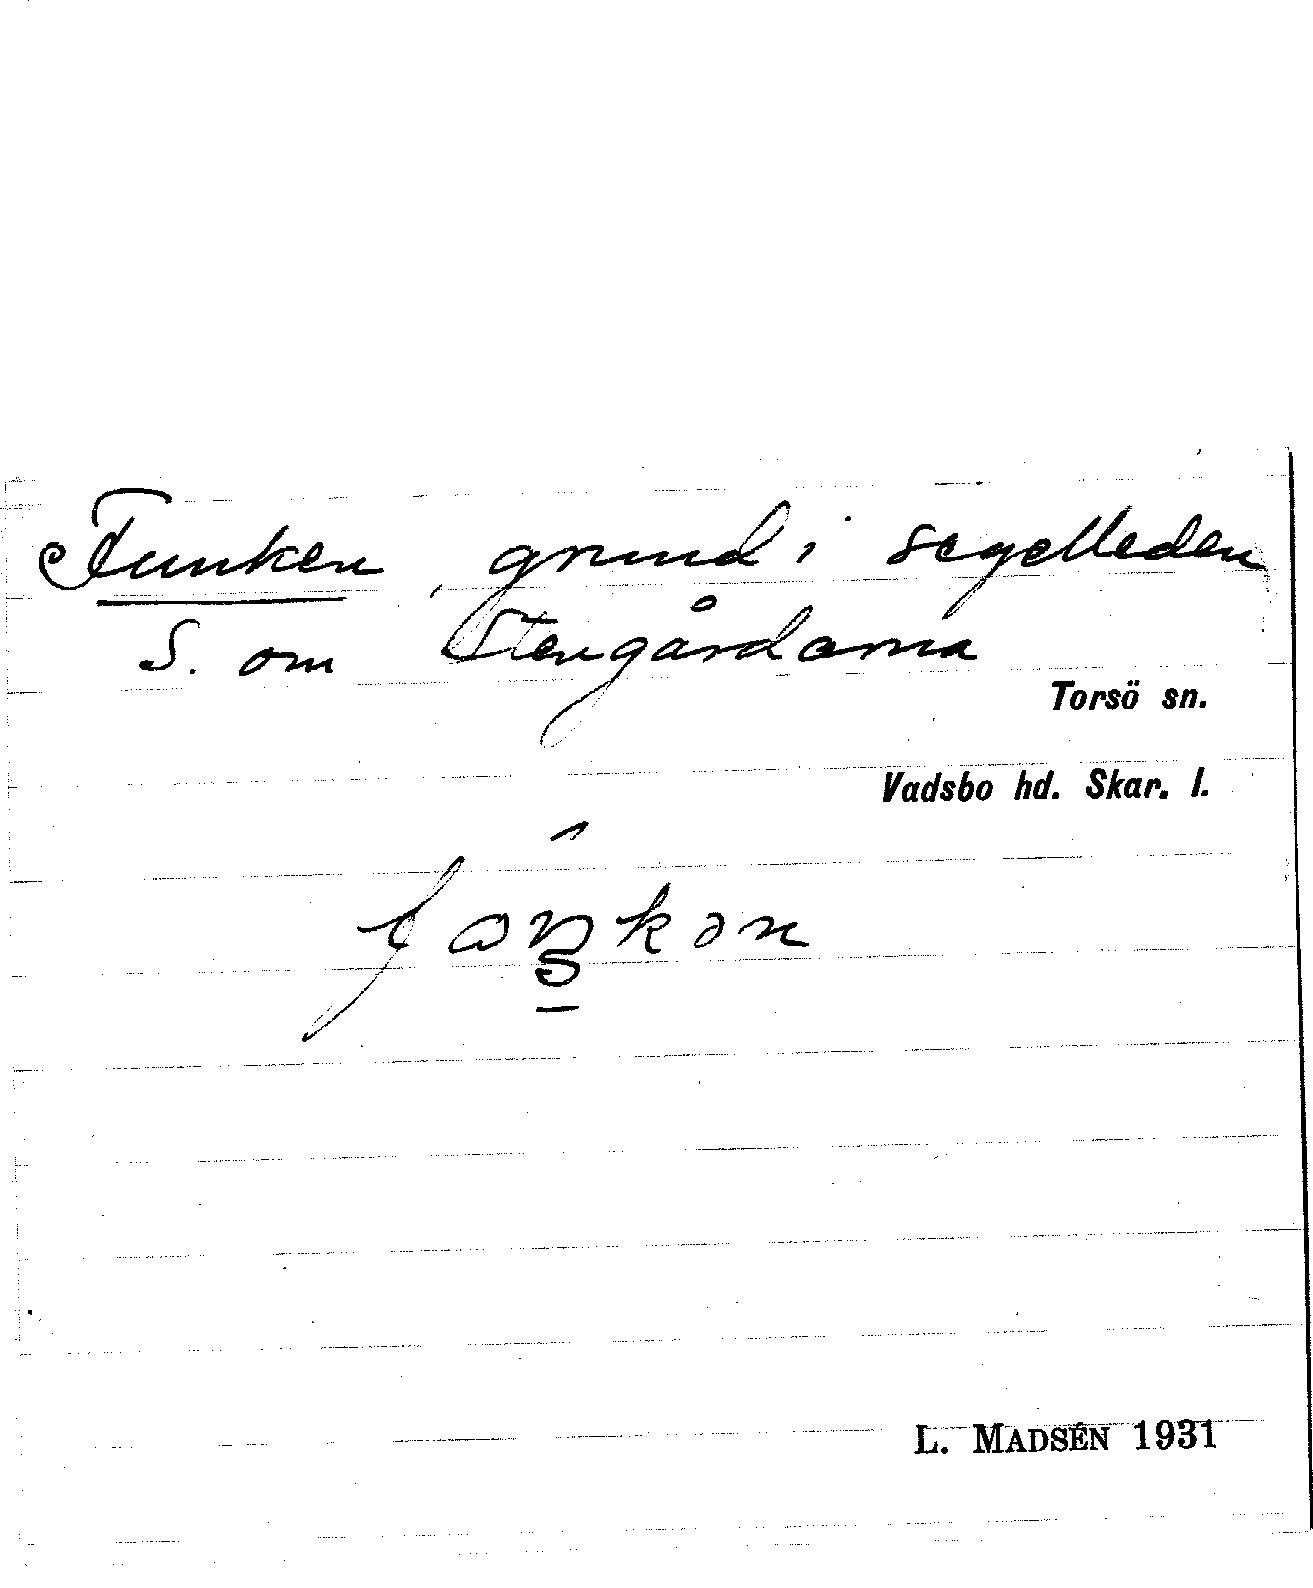 Funken, grund i segelleden
S. om Stengårdarna
Torsö sn.
Vadsbo hd. Skar. l.
L. MADSÉN 1931